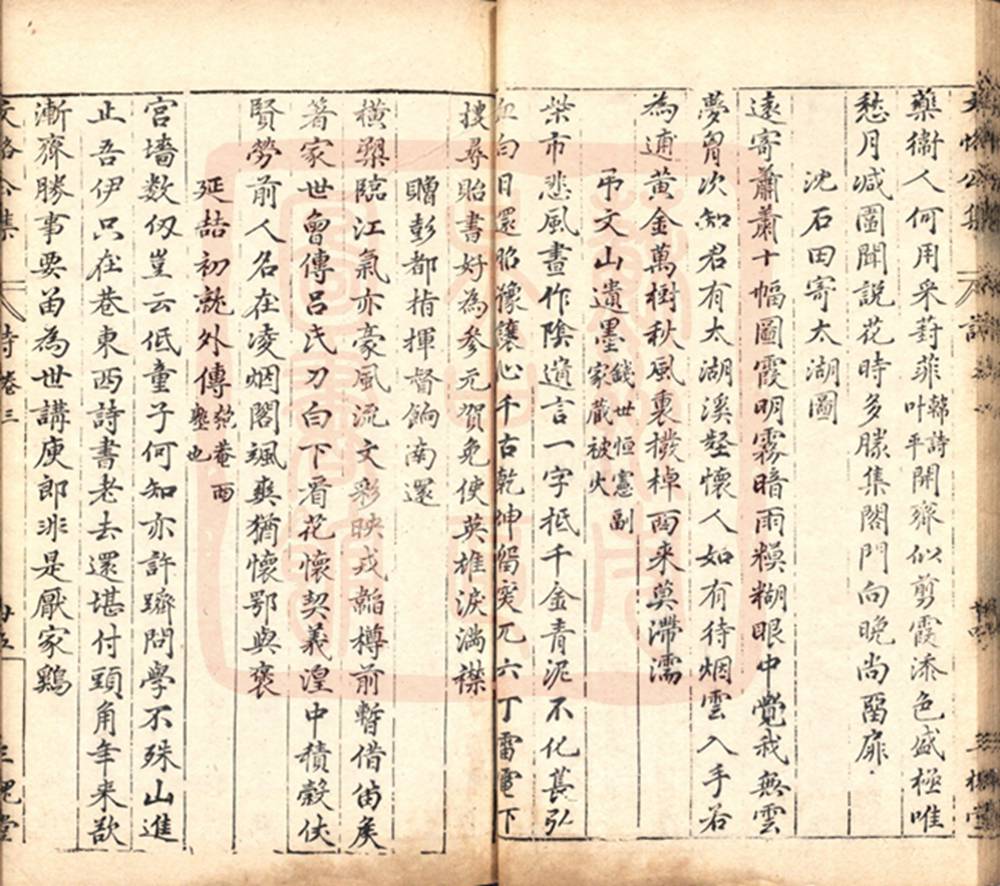 藥衞人何用采葑菲韩詩叶平開齊似剪霞添色盛極唯
愁月减圖聞説花時多勝集閣門向晚尚留扉
沈石田寄太湖圖
遠寄蕭蕭十幅圖霞明霧暗雨糢糊眼中覺我無雲
夢胷次知君有太湖溪壑懷人如有待烟雲入手若
為逋黄金萬樹秋風裏檥棹西来莫滯濡
弔文山遺墨餞世恒憲副家蔵被火
柴市悲風晝作陰遺言一字抵千金青泥不化萇弘
白日還昭豫讓心千古乾坤六丁雷電下
搜尋貽書好為参元賀免使英雄淚满襟
贈彭都指揮督餉南還
横槊臨江氣亦豪風流文彩映戎韜樽前暫借留矦
箸家世曾傳吕氏刀白下看花懷契義湟中積穀俠
賢勞前人名在凌烟閣颯爽猶懷鄂與褒
延喆初就外傳乾菴西塾也
宫墻数仭豈云低童子何知亦許躋問學不殊山進
止吾伊只在巷東西詩書老去還堪付頭角年来歖
漸齊勝事要留為世講庾郎非是厭家鷄
詩 卷三